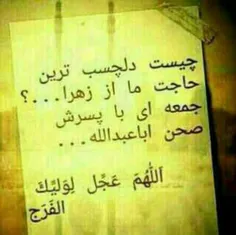 چیست دلچسب ترین
حاجت ما از زهرا...؟
جمعه ای با پسرش
صحن اباعبدالله...
اَللّهُمَ عَجِّل لِوَلیِّکَ
الفَرَج